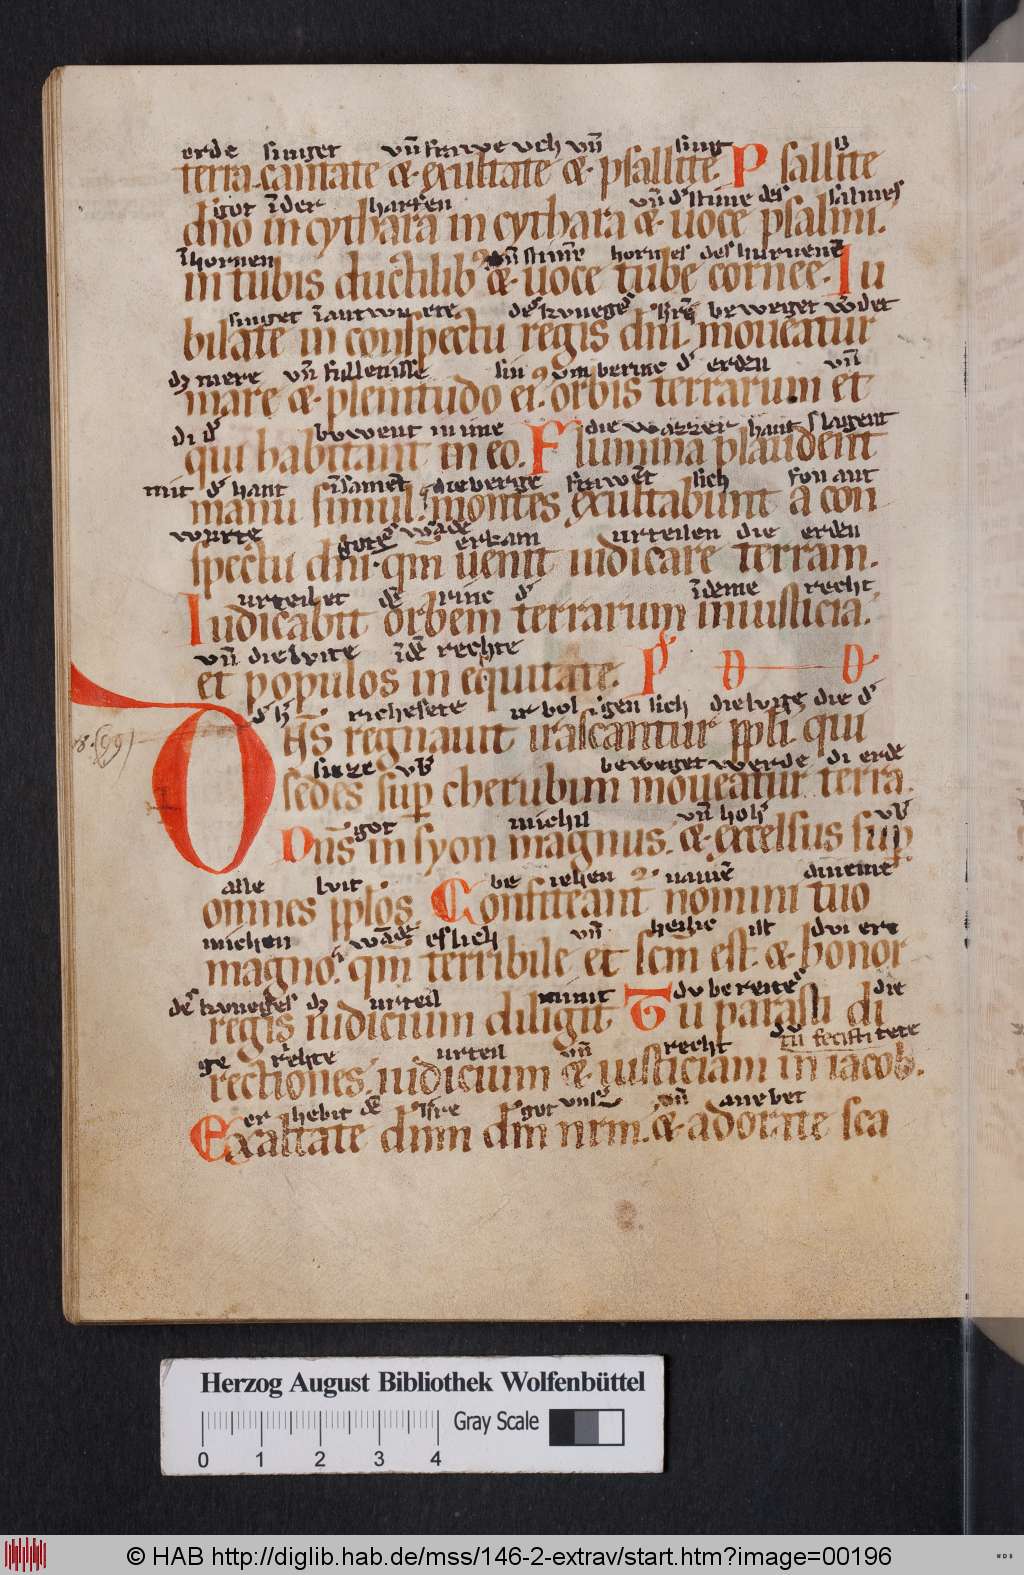 erde singet vn̄ frawe vch vn̄ sing
terra. cantate & exultate & psallite. Psallite
got īder harfen vn̄ dˢ stime des salmes
dn̄o in cythara in cythara & uoce psalmi.
īhornen vn̄ stim̄e hornes des hurnenē
in tubis ductilib⁹ & uoce tube cornee. Iu
singet īantwurete des kuneges beweget wˢdet
bilate in conspectu regis dn̄i moueatur
dz mere vn̄ fullenisse sin vmbering dˢ erden vn̄
mare & plenitudo ei⁹ orbis terrarum et
di dˢ buwent in ime die wazzer hant slagent
qui habitant in eo. Flumina plaudent
mit dˢ hant īsamēt die berge frawēt sich fon ant
manu simul. montes exultabunt a con
wrte gotes wāde erkam urteilen die erden
spectu dn̄i. qm̄ uenit iudicare terram.
urteilet dē ring dˢ īdeme recht
Iudicabit orbem terrarum in iusticia.
vn̄ die lvite īdē rechte
et populos in equitate. Ps D D
richesete irbolgen sich die die dˢ
Dn̄s regnauit irascantur ppli. qui
sizze vbˢ beweget werde di erde
sedes sup cherubim moueatur terra.
got michil vn̄ hohˢ vbˢ
Dn̄s in syon magnus. & excelsus sup
alle lvit be iehen namē dineme
omnes pplos. Confiteant² nomini tuo
michen wāde eslich vn̄ heilic ist dvi ere
magno. qm̄ terribile et scm̄ est. & honor
des kuneges dz urteil minnt dv bereites die
regis iudicium diligit Tu parasti di
ge rehte urteil vn̄ recht dv tete
tu fecisti
rectiones. iudicium & iusticiam in iacob.
er hebit dē hˢre got vnsˢ vn̄ anebet
Exaltate dnm dm̄ nrm. & adorate sca
(99)
Herzog August Bibliothek Wolfenbüttel
Gray Scale
0 1 2 3 4
© HAB http://diglib.hab.de/mss/146-2-extrav/start.htm?image=00196